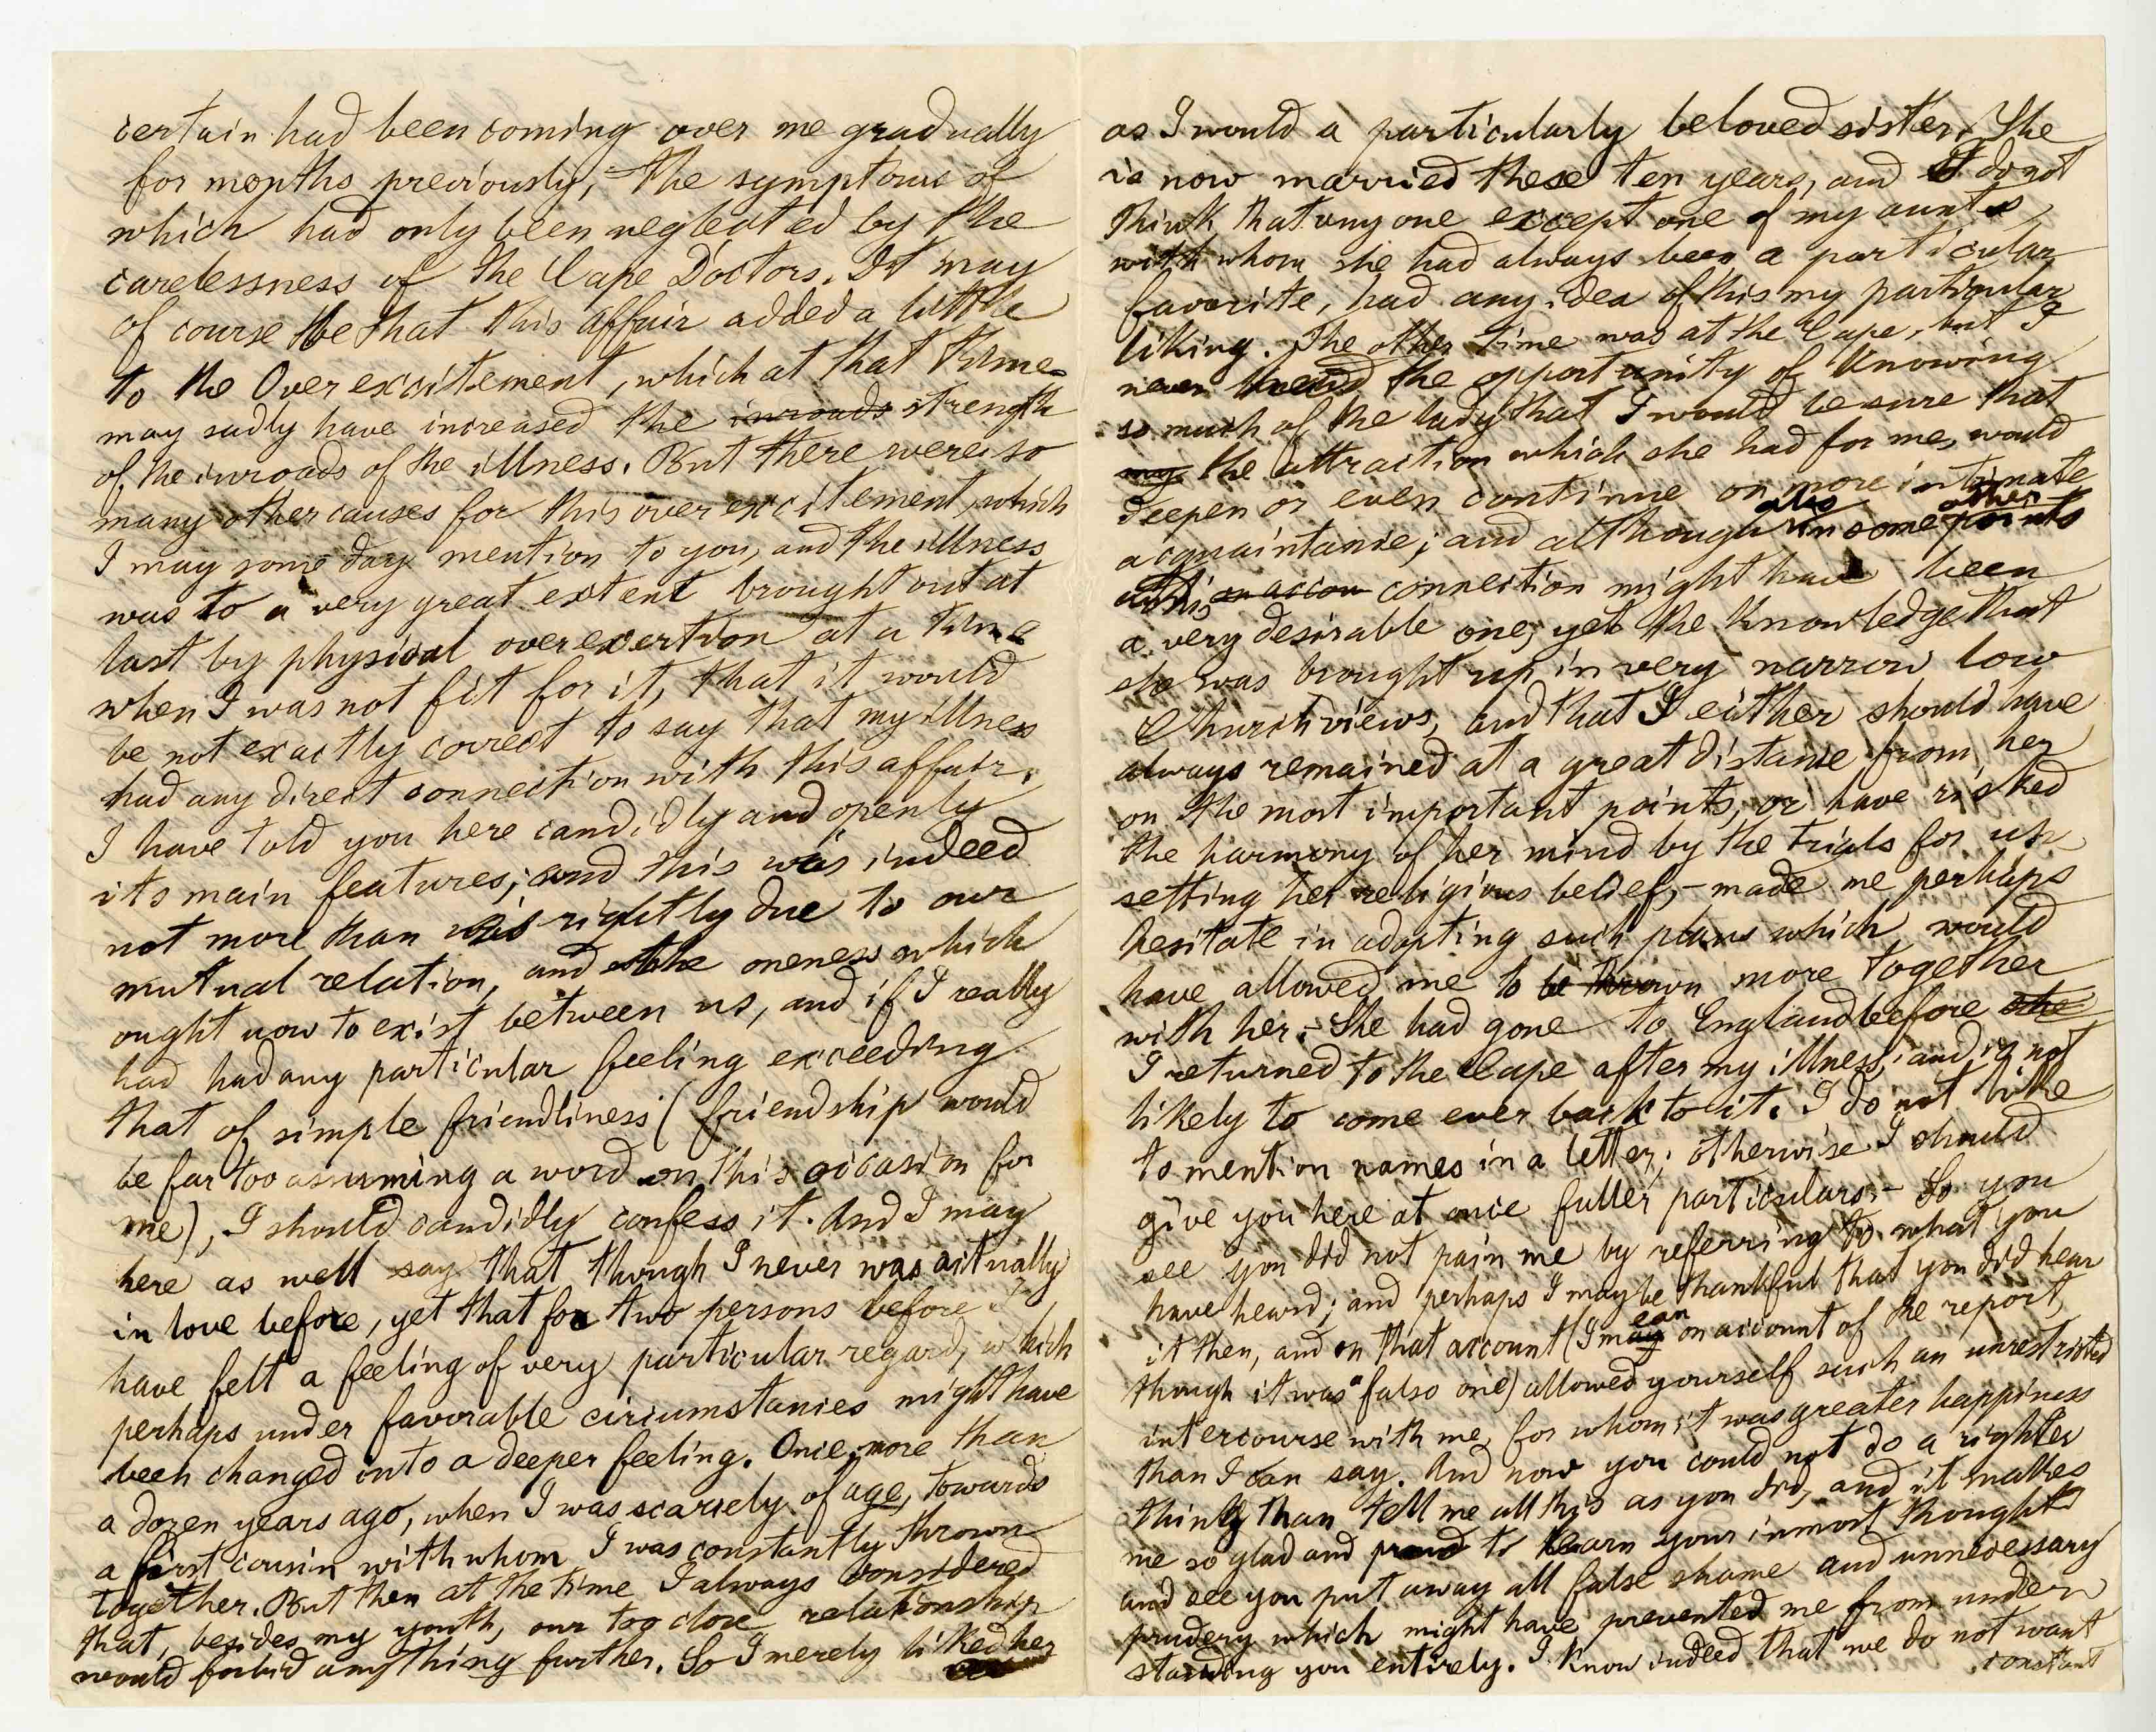 certain had been coming over me gradually
for months previously, - the symptoms of
which had only been neglected by the
carelessness of the Cape Doctors. It may
of course be that this affair added a little
to the Over excitement, which at that time
may sadly have increased the inroads strength
of the inroads of the illness. But there were so
many other causes for this over excitement, which
I may some day mention to you, and the illness
was to a very great extent brought out at
last by physical overexertion at a time
when I was not fit for it, that it would
be not exactly correct to say that my illness
had any direct connection with this affair.
I have told you here candidly and openly
its main features; and this was indeed
not more than was rightly due to our
mutual relation, and the oneness which
ought now to exist between us, and if I really
had had any particular feeling exceeding
that of simple friendliness (friendship would
be far too assuming a word on this occasion for
me), I should candidly confess it. And I may
here as well say that though I never was actually
in love before, yet that for two persons before I
have felt a feeling of very particular regard, which
perhaps under favorable circumstances might have
been changed into a deeper feeling. Once, more than
a dozen years ago, when I was scarcely of age, towards
a first cousin with whom I was constantly thrown
together. But then at the time I always considered
that, besides my youth, our too close relationship
would forbid anything further. So I merely liked her
as I would a particularly beloved sister. She
is now married these ten years, and I do not
think that any one except one of my aunts
with whom she had always been a particular
favorite, had any idea of this my particular
liking. The other time was at the Cape, but I
never had the opportunity of knowing
so much of the lady that I would be sure that
my the attraction which she had for me, would
deepen or even continue on more intimate
acquaintance; and although also in some other points
this on accou connection might have been
a very desirable one, yet the knowledge that
she was brought up in very narrow low
Church views, and that I either should have
always remained at a great distance from her
on the most important points, or have risked
the harmony of her mind by the trials for un
setting her religious belief, - made me perhaps
hesitate in adopting such plans which would
have allowed me to be thrown more together
with her. - She had gone to England before she
I returned to the Cape after my illness, and is not
likely to come ever back to it. I do not like
to mention names in a letter; otherwise I should
give you here at once fuller particulars. - So you
see you did not pain me by referring to what you
have heard; and perhaps I may be thankful that you did hear
it then, and on that account (I mean on account of the report,
though it was a false one) allowed yourself such an unrestricted
intercourse with me, for whom it was greater happiness
than I can say. And now you could not do a righter
thing than tell me all this as you did, and it makes
me so glad and proud to learn your inmost thoughts
and see you put away all false shame and unnecessary
prudery which might have prevented me from under
standing you entirely. I know indeed that we do not want
constant